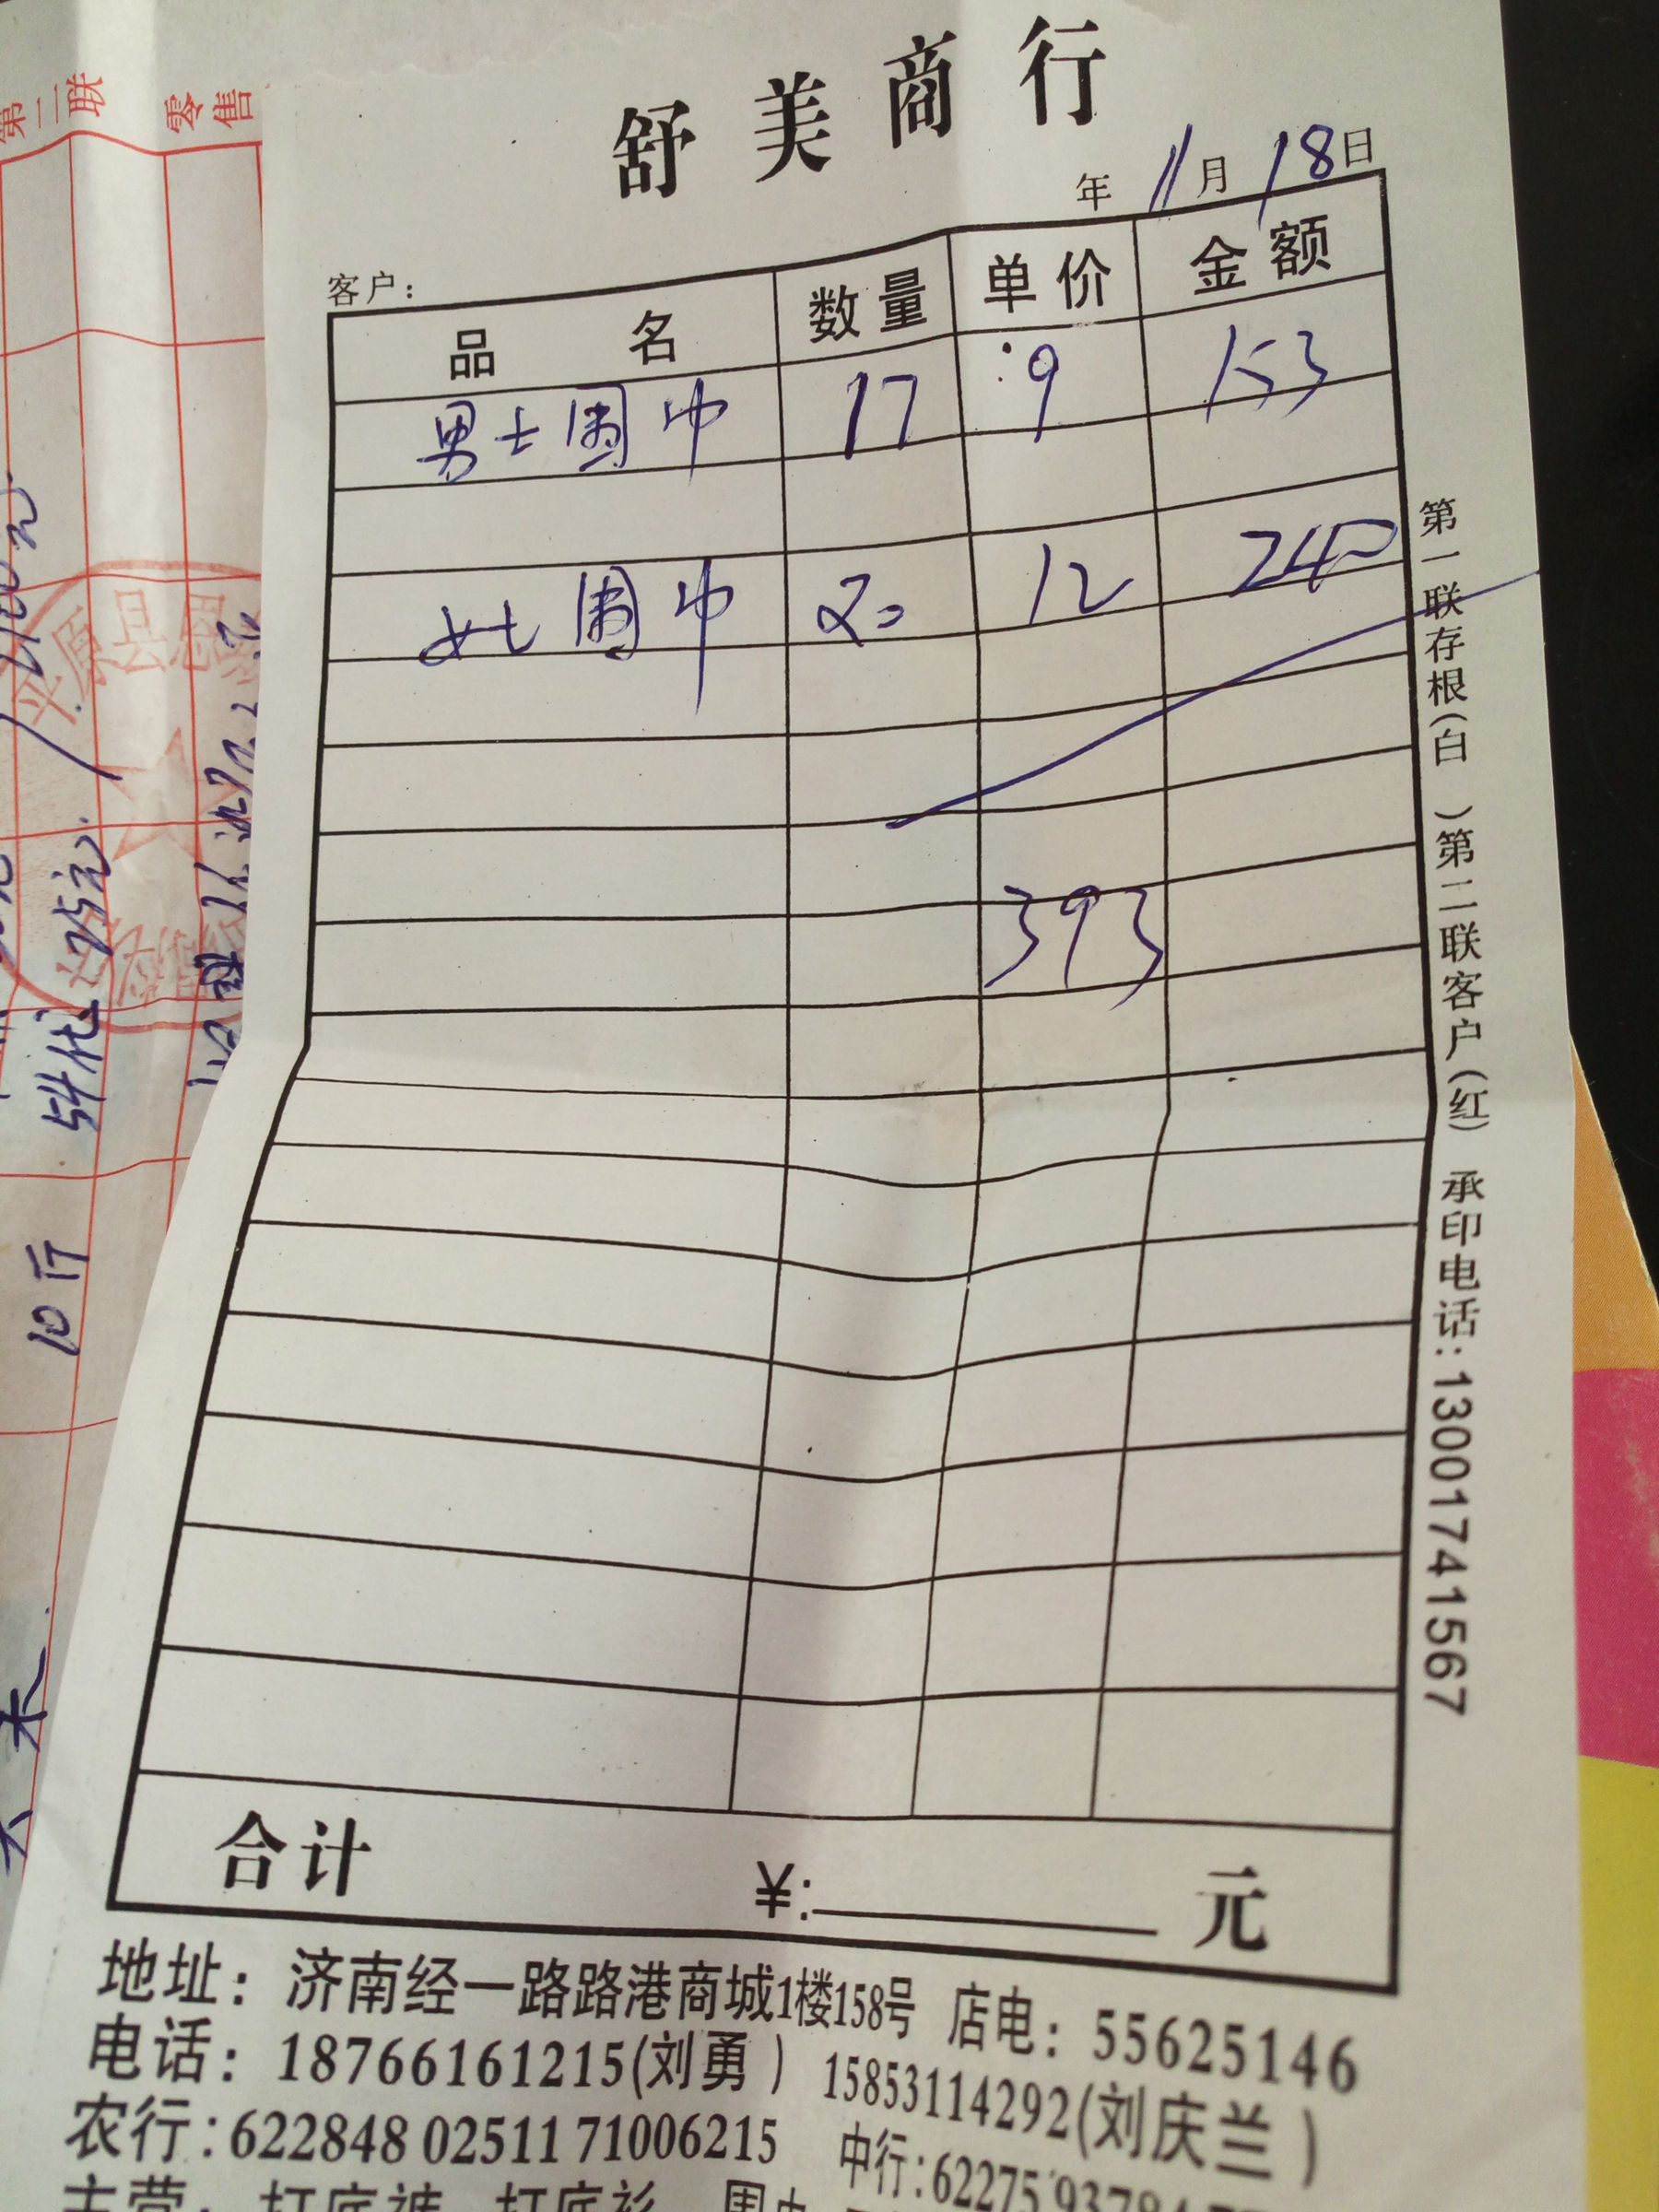 舒美商行
年 11月 18日
客户：
品名 数量 单价 金额
男士围巾 17 9 153
女士围巾 20 12 240
393
合计 ¥: 元
地址：济南经一路路港商城1楼158号 店电：55625146
电话：18766161215(刘勇) 15853114292(刘庆兰)
农行:622848 02511 71006215 中行:62275 93784
主营：打底裤 打底衫 围巾
第一联存根(白 )第二联客户(红) 承印电话:13001741567
第二联
零售
10斤